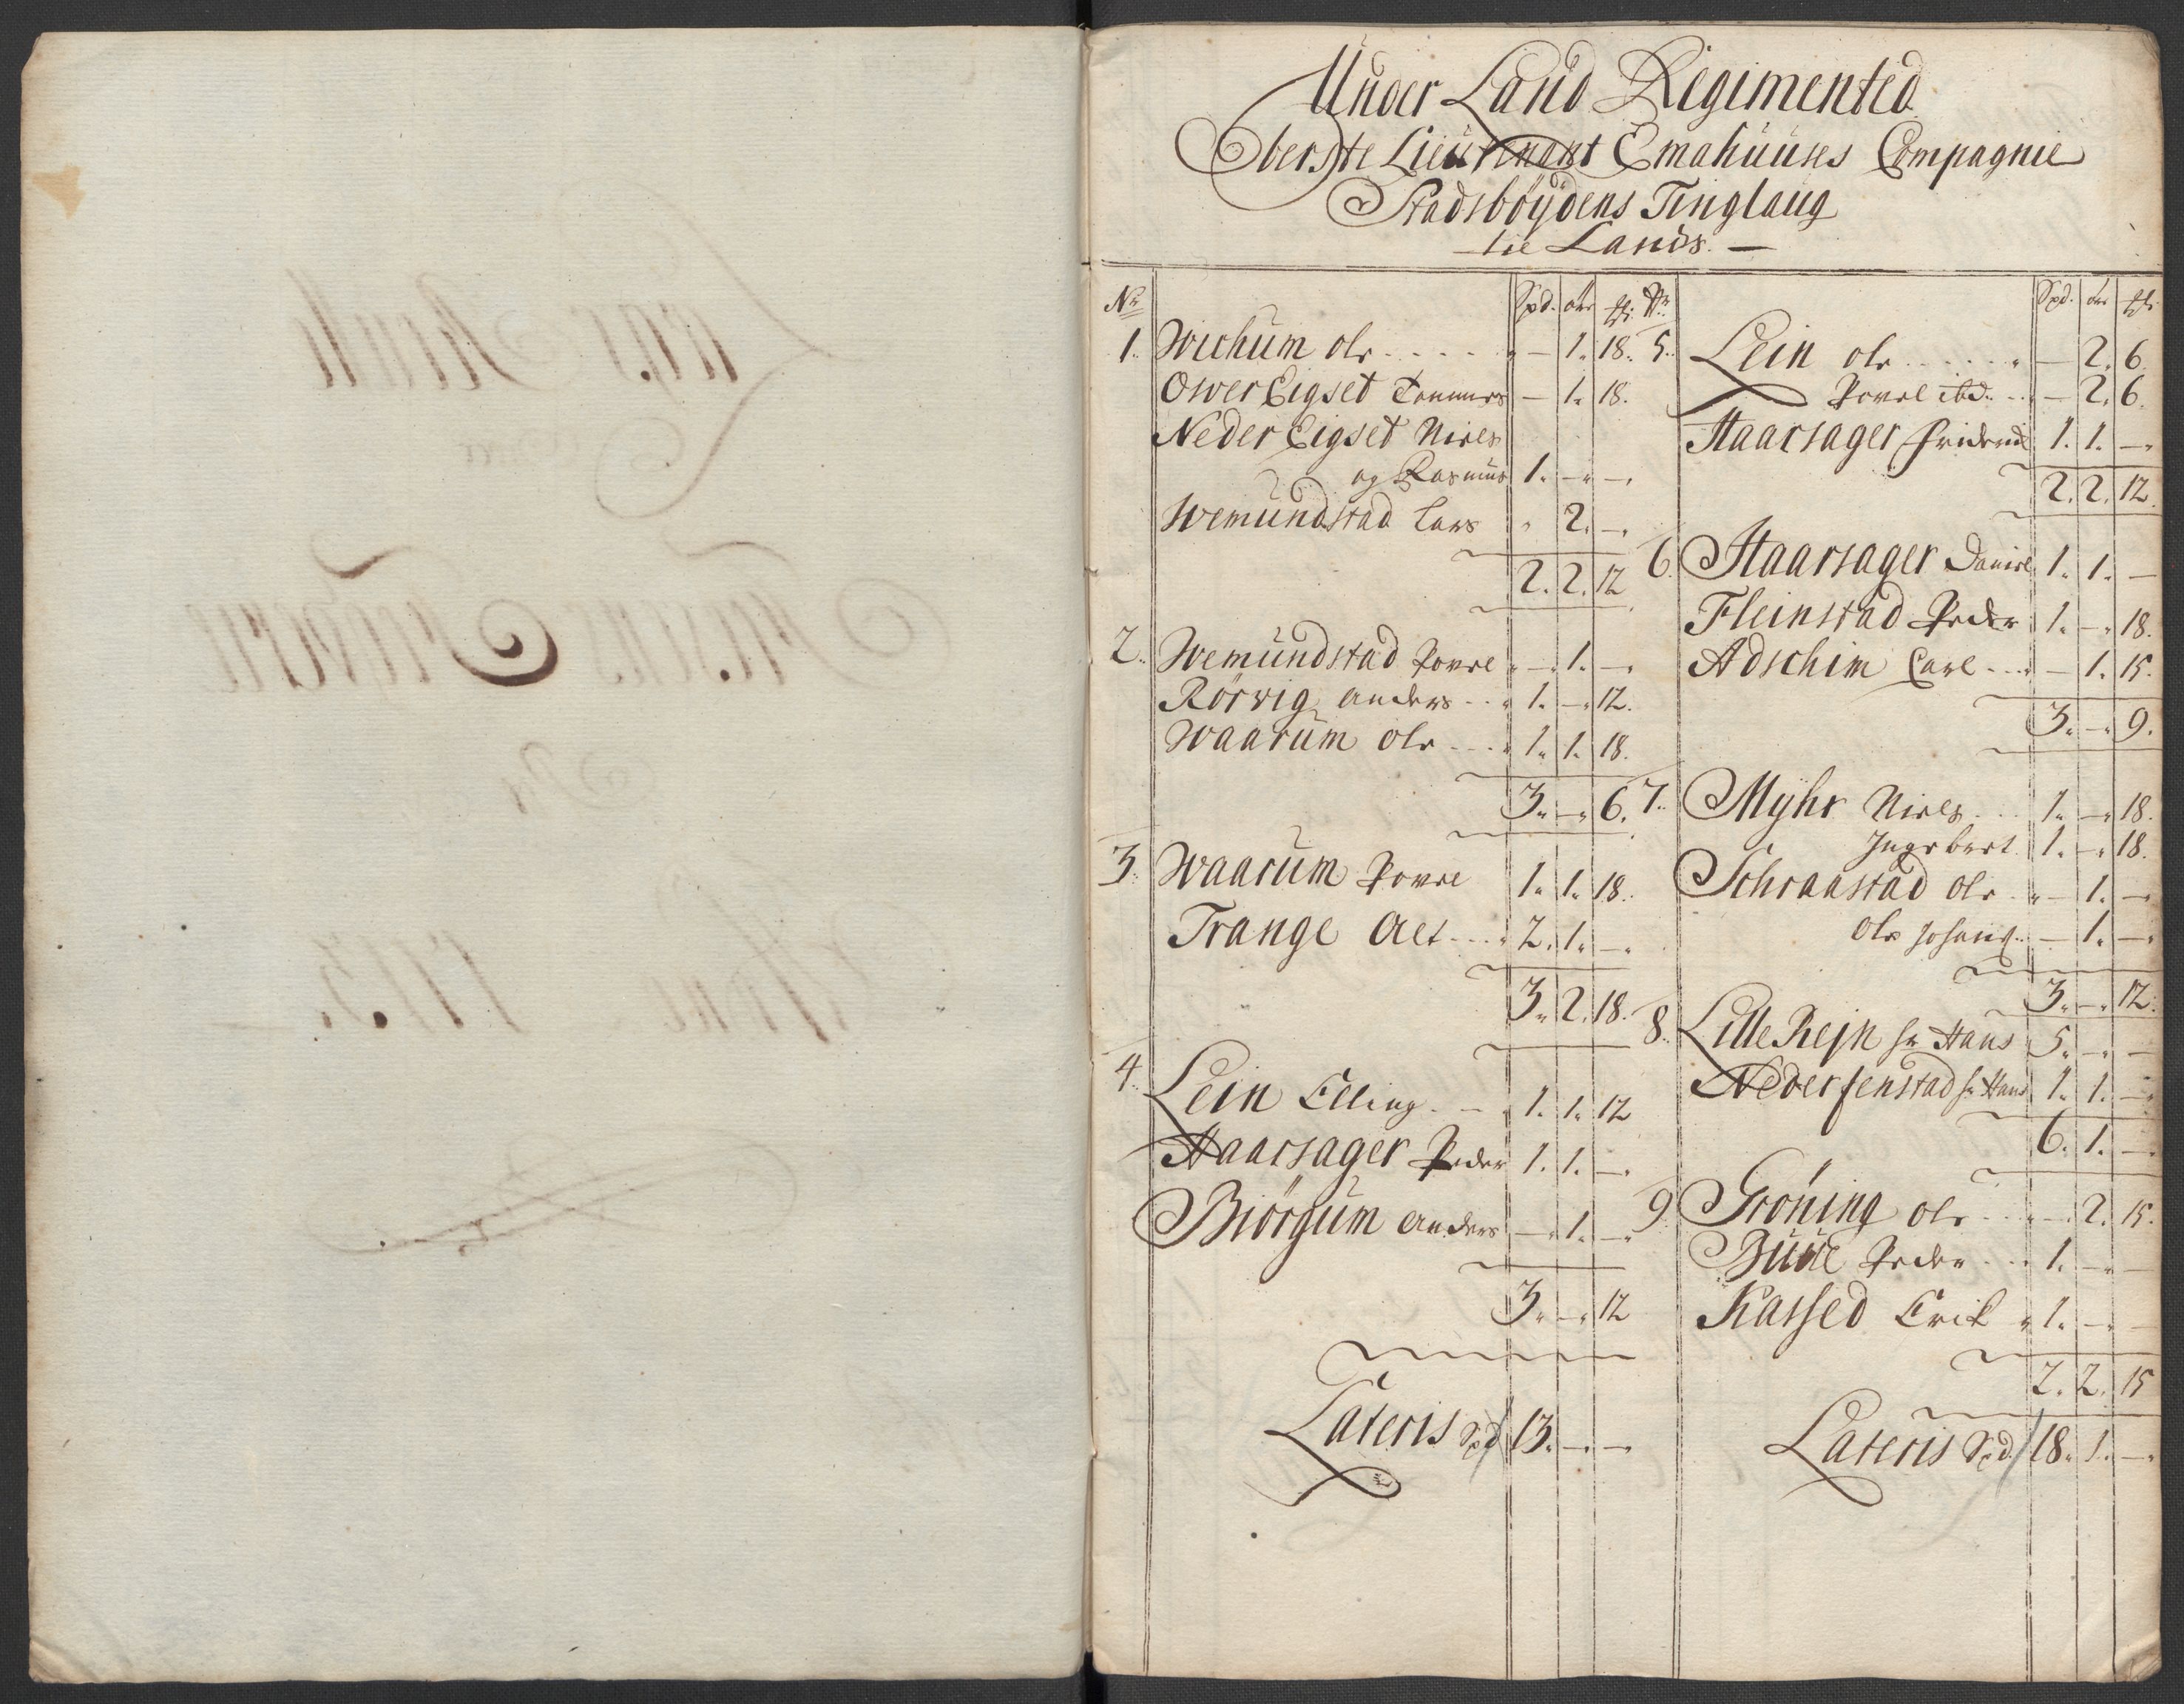 Under Land Regimented
Oberste Lieutenant Emahuuses Compagnie
Stadsbøÿdens Tinglaug
til Lands. —
Nr Spd. ort ſl:
1. Wichum ole - 1. 18.
Ower Eigset Tommes - 1. 18.
Neder Eigset Niels
og Rasmus 1. - -
Wemundstad Lars 2. -
2. 2. 12
2. Wemundstad Povel - 1. -
Rørvig anders 1. - 12.
Waarum ole 1. 1. 18.
3. - 6.
3. Waarum Povel 1. 1. 18.
Trange Alt 2. 1. -
3. 2. 18.
4. Lein Elling 1. 1. 12
Haarsager Peder 1. 1. -
Biörgum anders - 1. -
3. - 12
Lateris Spd 13. - -
Nr Spd. ort ſl:
5. Lein ole - 2. 6
Povel ibd: - 2. 6.
Haarsager Friderich 1. 1. -
2. 2. 12.
6. Haarsager Daniel 1. 1. -
Fleinstad Peder 1. - 18.
Adschim Carl - 1. 15.
3. - 9.
7. Myhr Niels 1. - 18.
Ingebert 1. - 18.
Schraastad ole - 1. -
Ole Johans: - 1. -
3. - 12.
8. Lille Rejn hr Hans 5. - -
Nederfenstad hr Hans 1. 1. -
6. 1. -
9. Grøning ole - 2. 15.
Bune Peder 1. - -
Kassed Erik 1. - -
2. 2. 15
Lateris Spd 18. 1. -